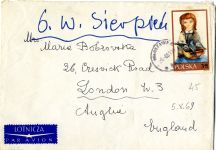 G. W. Sierpień
Maria Bobrowska
26, Creswick Road
London W. 3
45
Anglia
5.X.69
England
POLSKA
LOTNICZA
PAR AVION